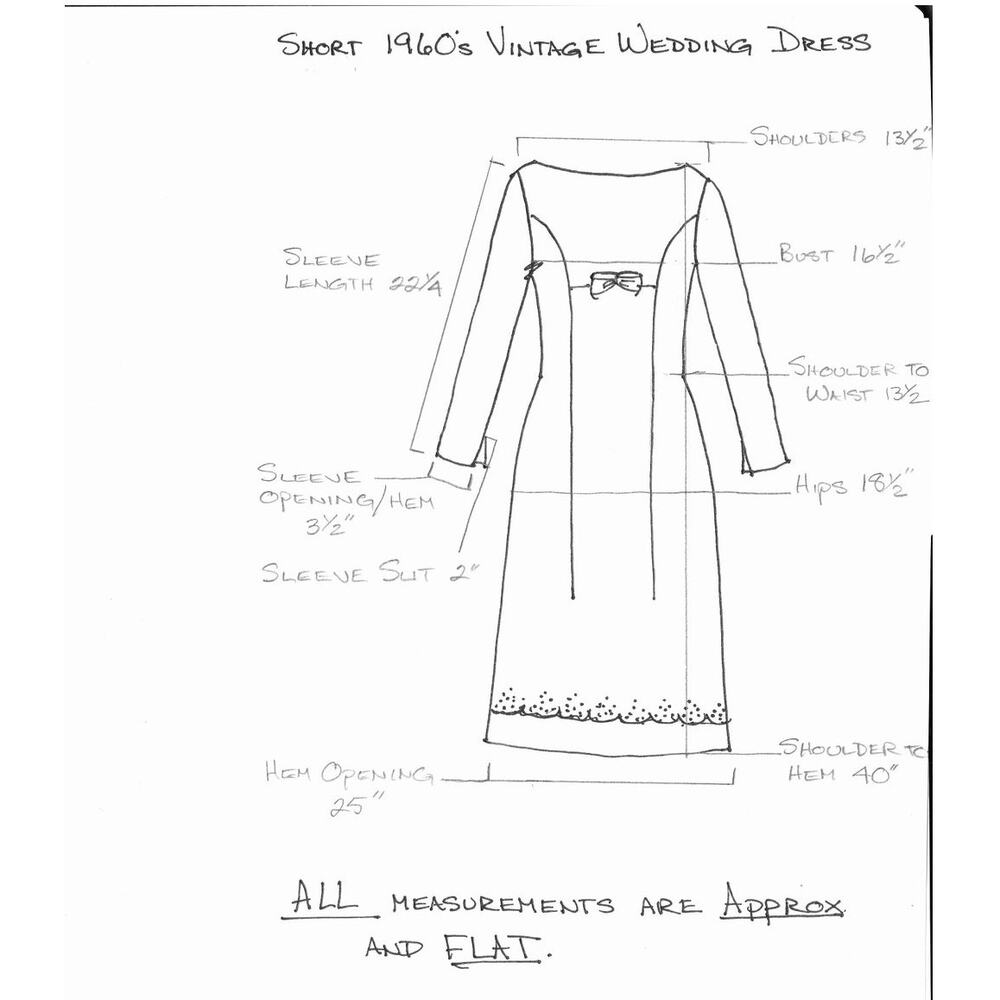 SHORT 1960's VINTAGE WEDDING DRESS
SHOULDERS 13½"
SLEEVE
LENGTH 22¼
BUST 16½"
SHOULDER TO
WAIST 13½
SLEEVE
OPENING/HEM
3½"
HIPS 18½"
SLEEVE SLIT 2"
SHOULDER TO
HEM 40"
HEM OPENING
25"
ALL MEASUREMENTS ARE APPROX
AND FLAT.